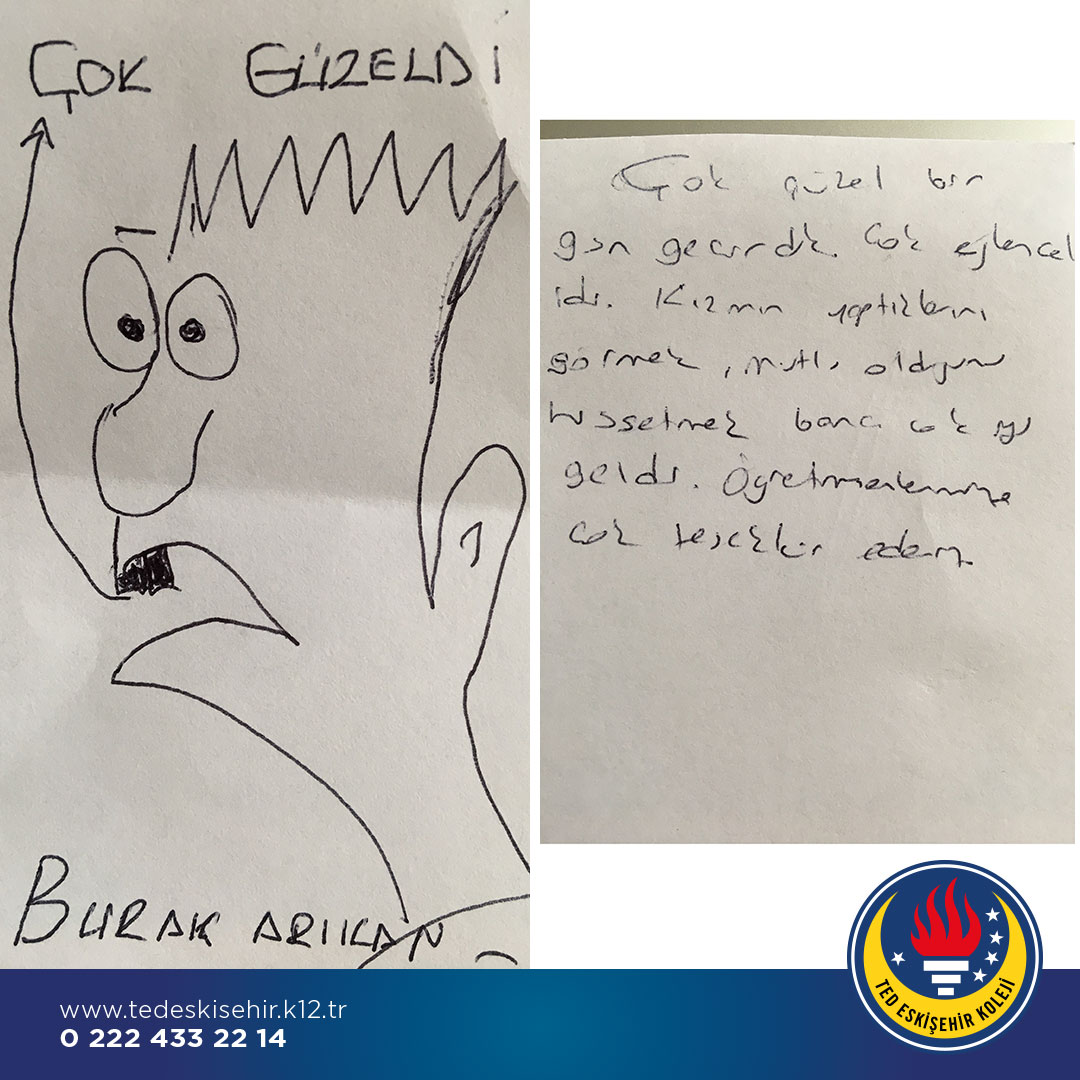 ÇOK GÜZELDİ
BURAK ARIKAN
Çok güzel bir
gün geçirdik. Çok eğlencel
idi. Kızımın yaptıklarını
görmek, mutlu olduğunu
hissetmek bana çok iyi
geldi. Öğretmenlerimize
çok teşekkür ederim.
TED ESKİŞEHİR KOLEJİ
www.tedeskisehir.k12.tr
0 222 433 22 14